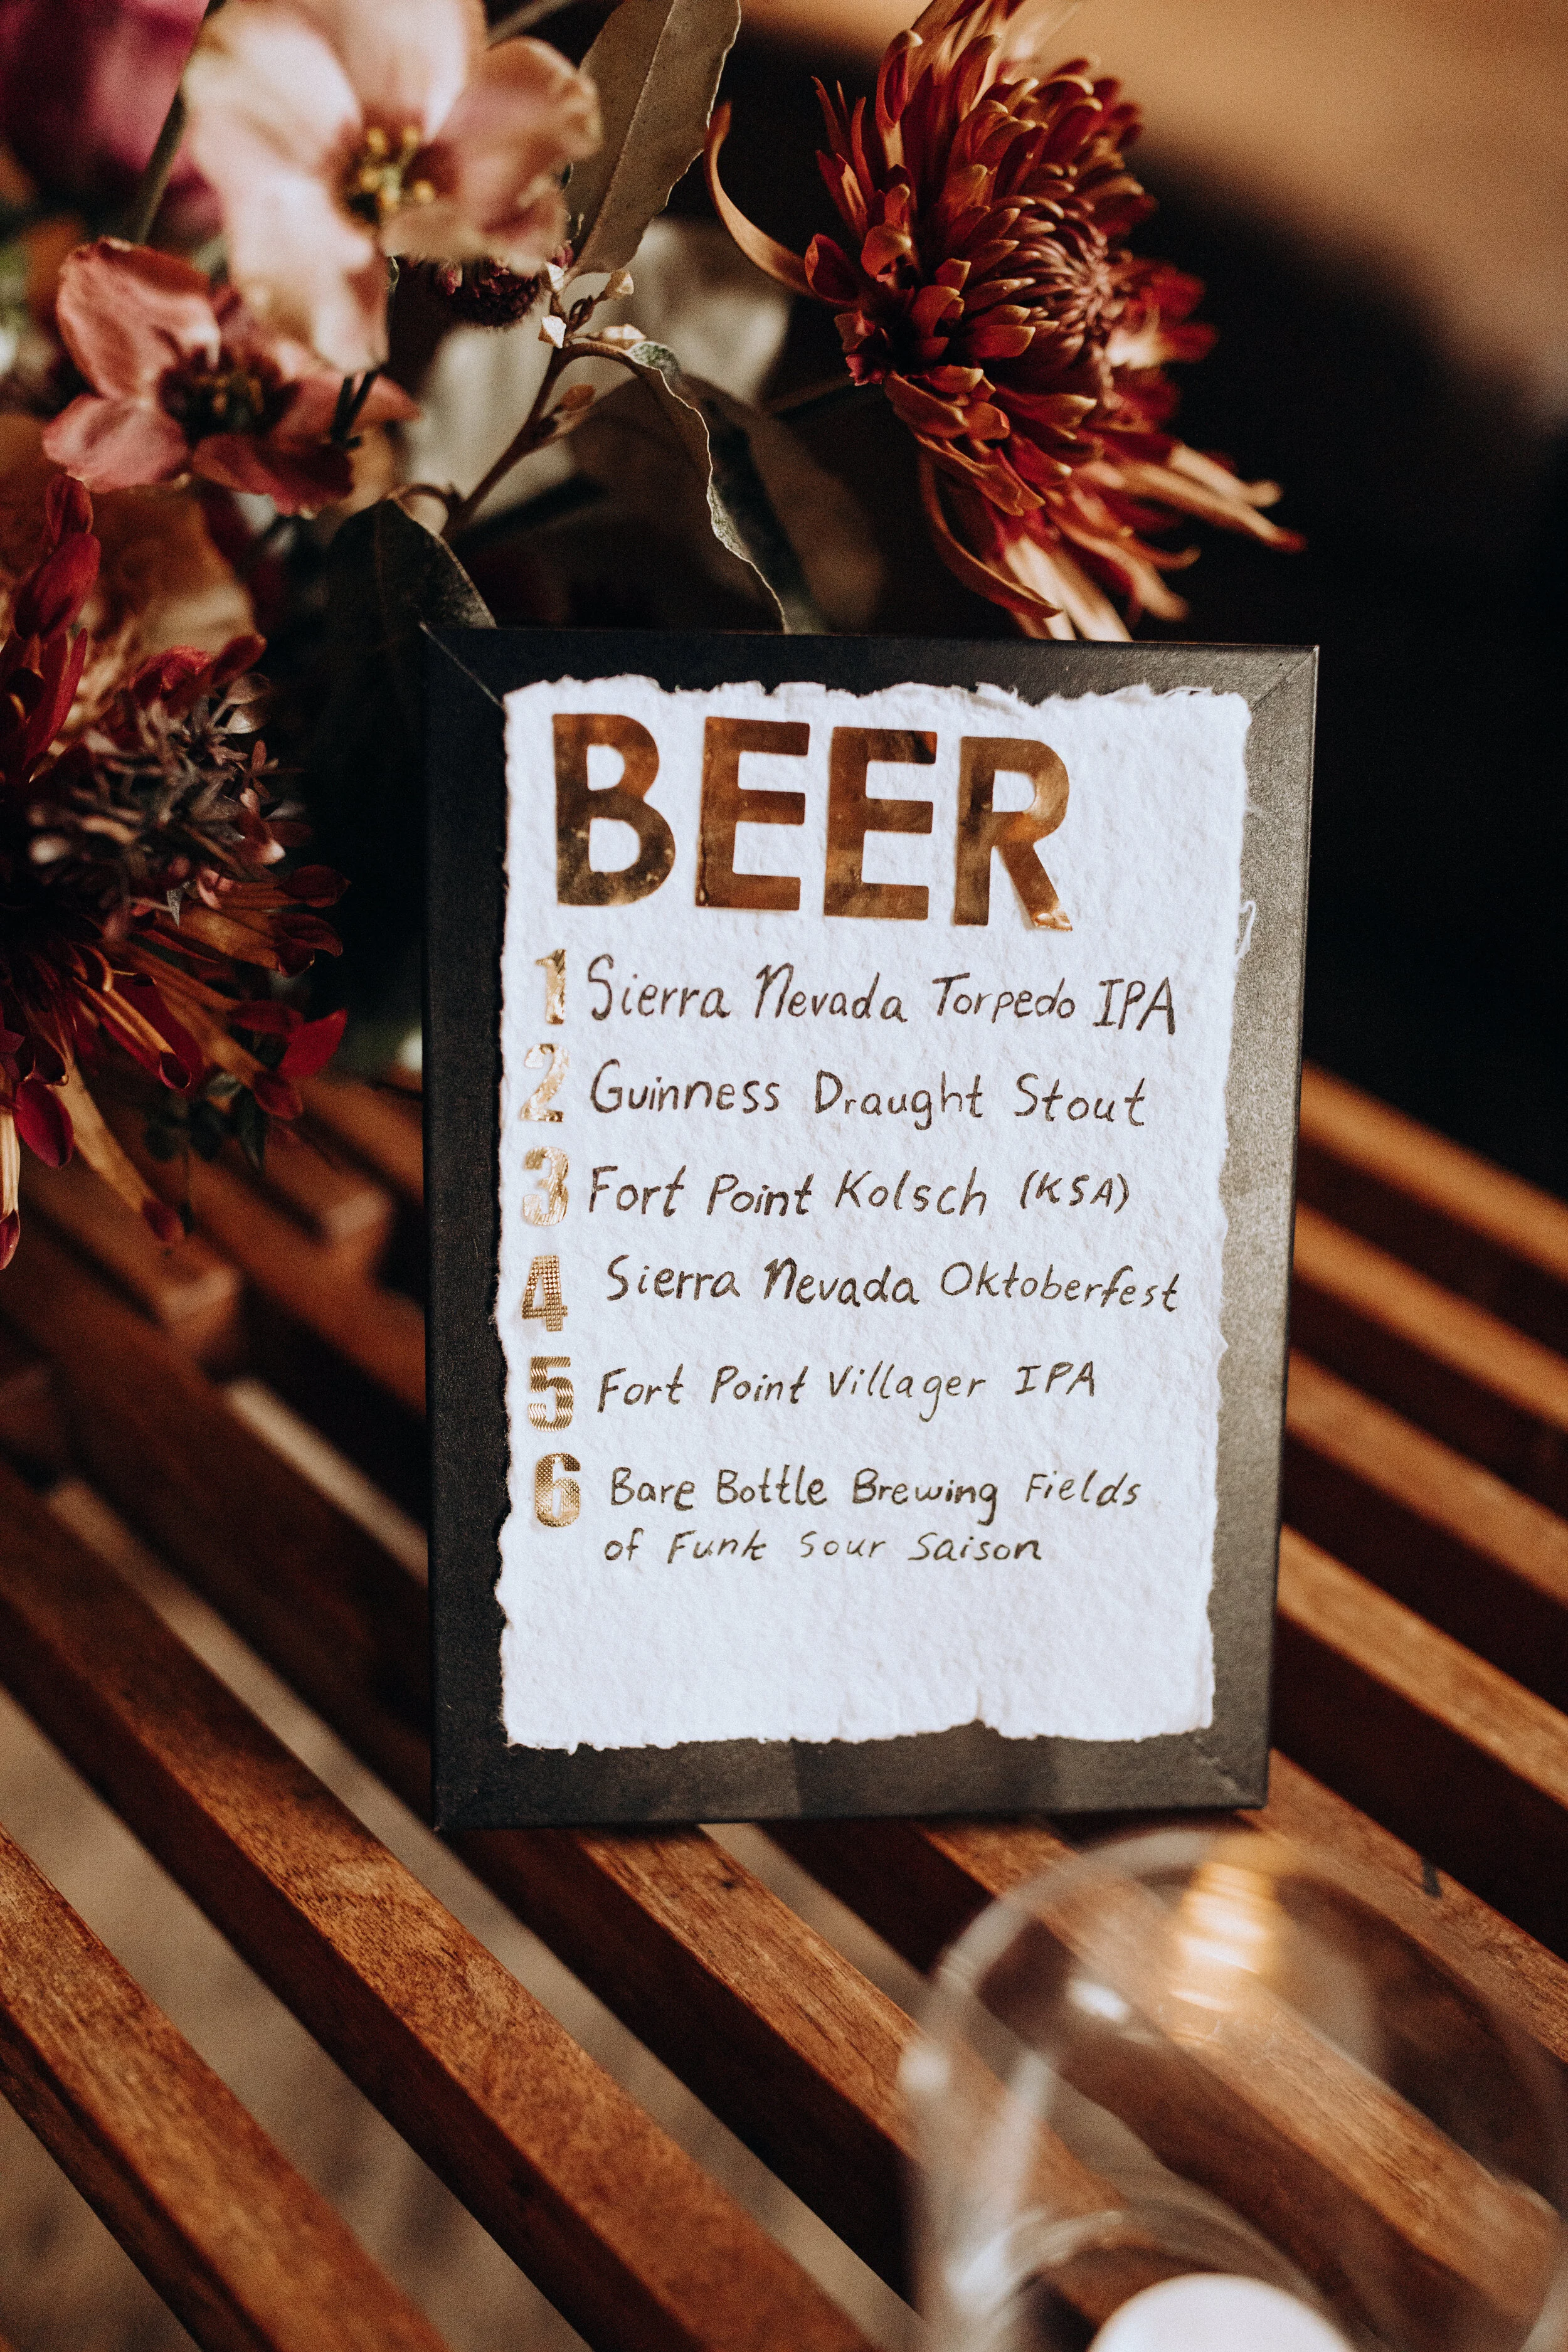 BEER
1 Sierra Nevada Torpedo IPA
2 Guinness Draught Stout
3 Fort Point Kolsch (KSA)
4 Sierra Nevada Oktoberfest
5 Fort Point Villager IPA
6 Bare Bottle Brewing Fields
of Funk Sour Saison